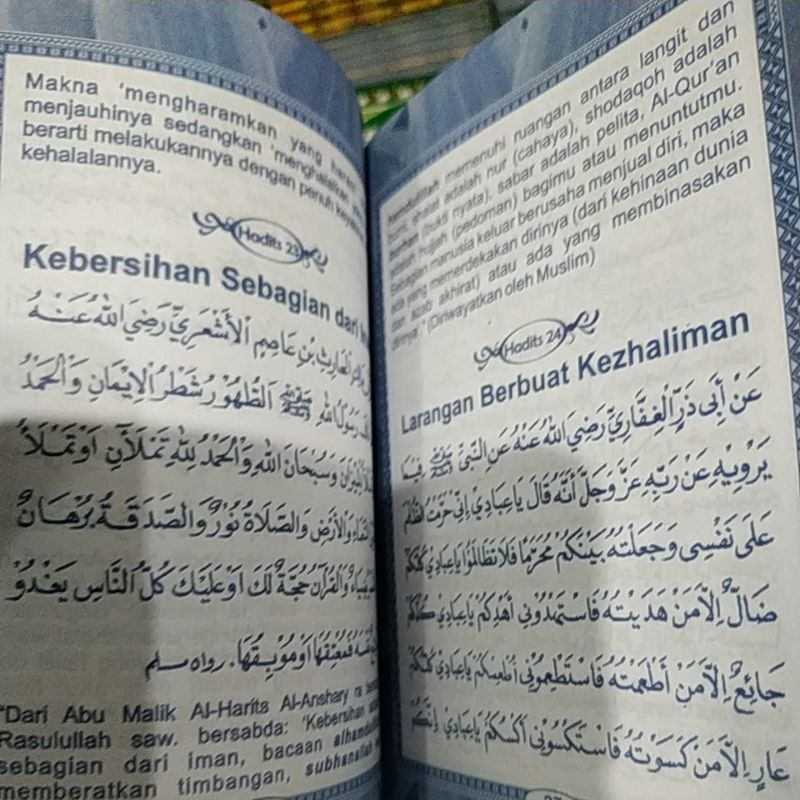 Makna 'mengharamkan yang
menjauhinya sedangkan 'menghalalkan
berarti melakukannya dengan penuh
kehalalannya.
Hadits 23
Kebersihan Sebagian dari
الحَارِثِ بْنِ عَاصِمٍ الْأَشْعَرِيِّ رَضِيَ اللهُ عَنْهُ
رَسُوْلُ اللهِ ﷺ الطُّهُوْرُ شَطْرُ الْإِيْمَانِ وَالْحَمْدُ
الْمِيْزَانَ وَسُبْحَانَ اللهِ وَالْحَمْدُ لِلّٰهِ تَمْلَآنِ اَوْ تَمْلَأُ
وَالْأَرْضِ وَالصَّلَاةُ نُوْرٌ وَالصَّدَقَةُ بُرْهَانٌ
ضِيَاءٌ وَالْقُرْآنُ حُجَّةٌ لَكَ اَوْ عَلَيْكَ كُلُّ النَّاسِ يَغْدُوْ
فَمُعْتِقُهَا اَوْ مُوْبِقُهَا. رواه مسلم
"Dari Abu Malik Al-Harits Al-Anshary ra
Rasulullah saw. bersabda: 'Kebersihan
sebagian dari iman, bacaan
memberatkan timbangan, subhanallah
memenuhi ruangan antara langit dan
bumi, shalat adalah nur (cahaya), shodaqoh adalah
(bukti nyata), sabar adalah pelita, Al-Qur'an
adalah hujjah (pedoman) bagimu atau menuntutmu.
Sebagian manusia keluar berusaha menjual diri, maka
ada yang memerdekakan dirinya (dari kehinaan dunia
dan azab akhirat) atau ada yang membinasakan
dirinya." (Diriwayatkan oleh Muslim)
Hadits 24
Larangan Berbuat Kezhaliman
عَنْ أَبِى ذَرٍّ الْغِفَارِيِّ رَضِيَ اللهُ عَنْهُ عَنِ النَّبِيِّ ﷺ فِيْمَا
يَرْوِيْهِ عَنْ رَبِّهِ عَزَّ وَجَلَّ أَنَّهُ قَالَ يَا عِبَادِيْ إِنِّى حَرَّمْتُ الظُّلْمَ
عَلَى نَفْسِى وَجَعَلْتُهُ بَيْنَكُمْ مُحَرَّمًا فَلَا تَظَالَمُوْا يَا عِبَادِيْ كُلُّكُمْ
ضَالٌّ إِلَّا مَنْ هَدَيْتُهُ فَاسْتَهْدُوْنِى أَهْدِكُمْ يَا عِبَادِيْ كُلُّكُمْ
جَائِعٌ إِلَّا مَنْ أَطْعَمْتُهُ فَاسْتَطْعِمُوْنِى أُطْعِمْكُمْ يَا عِبَادِيْ كُلُّكُمْ
عَارٍ إِلَّا مَنْ كَسَوْتُهُ فَاسْتَكْسُوْنِى أَكْسُكُمْ يَا عِبَادِيْ إِنَّكُمْ